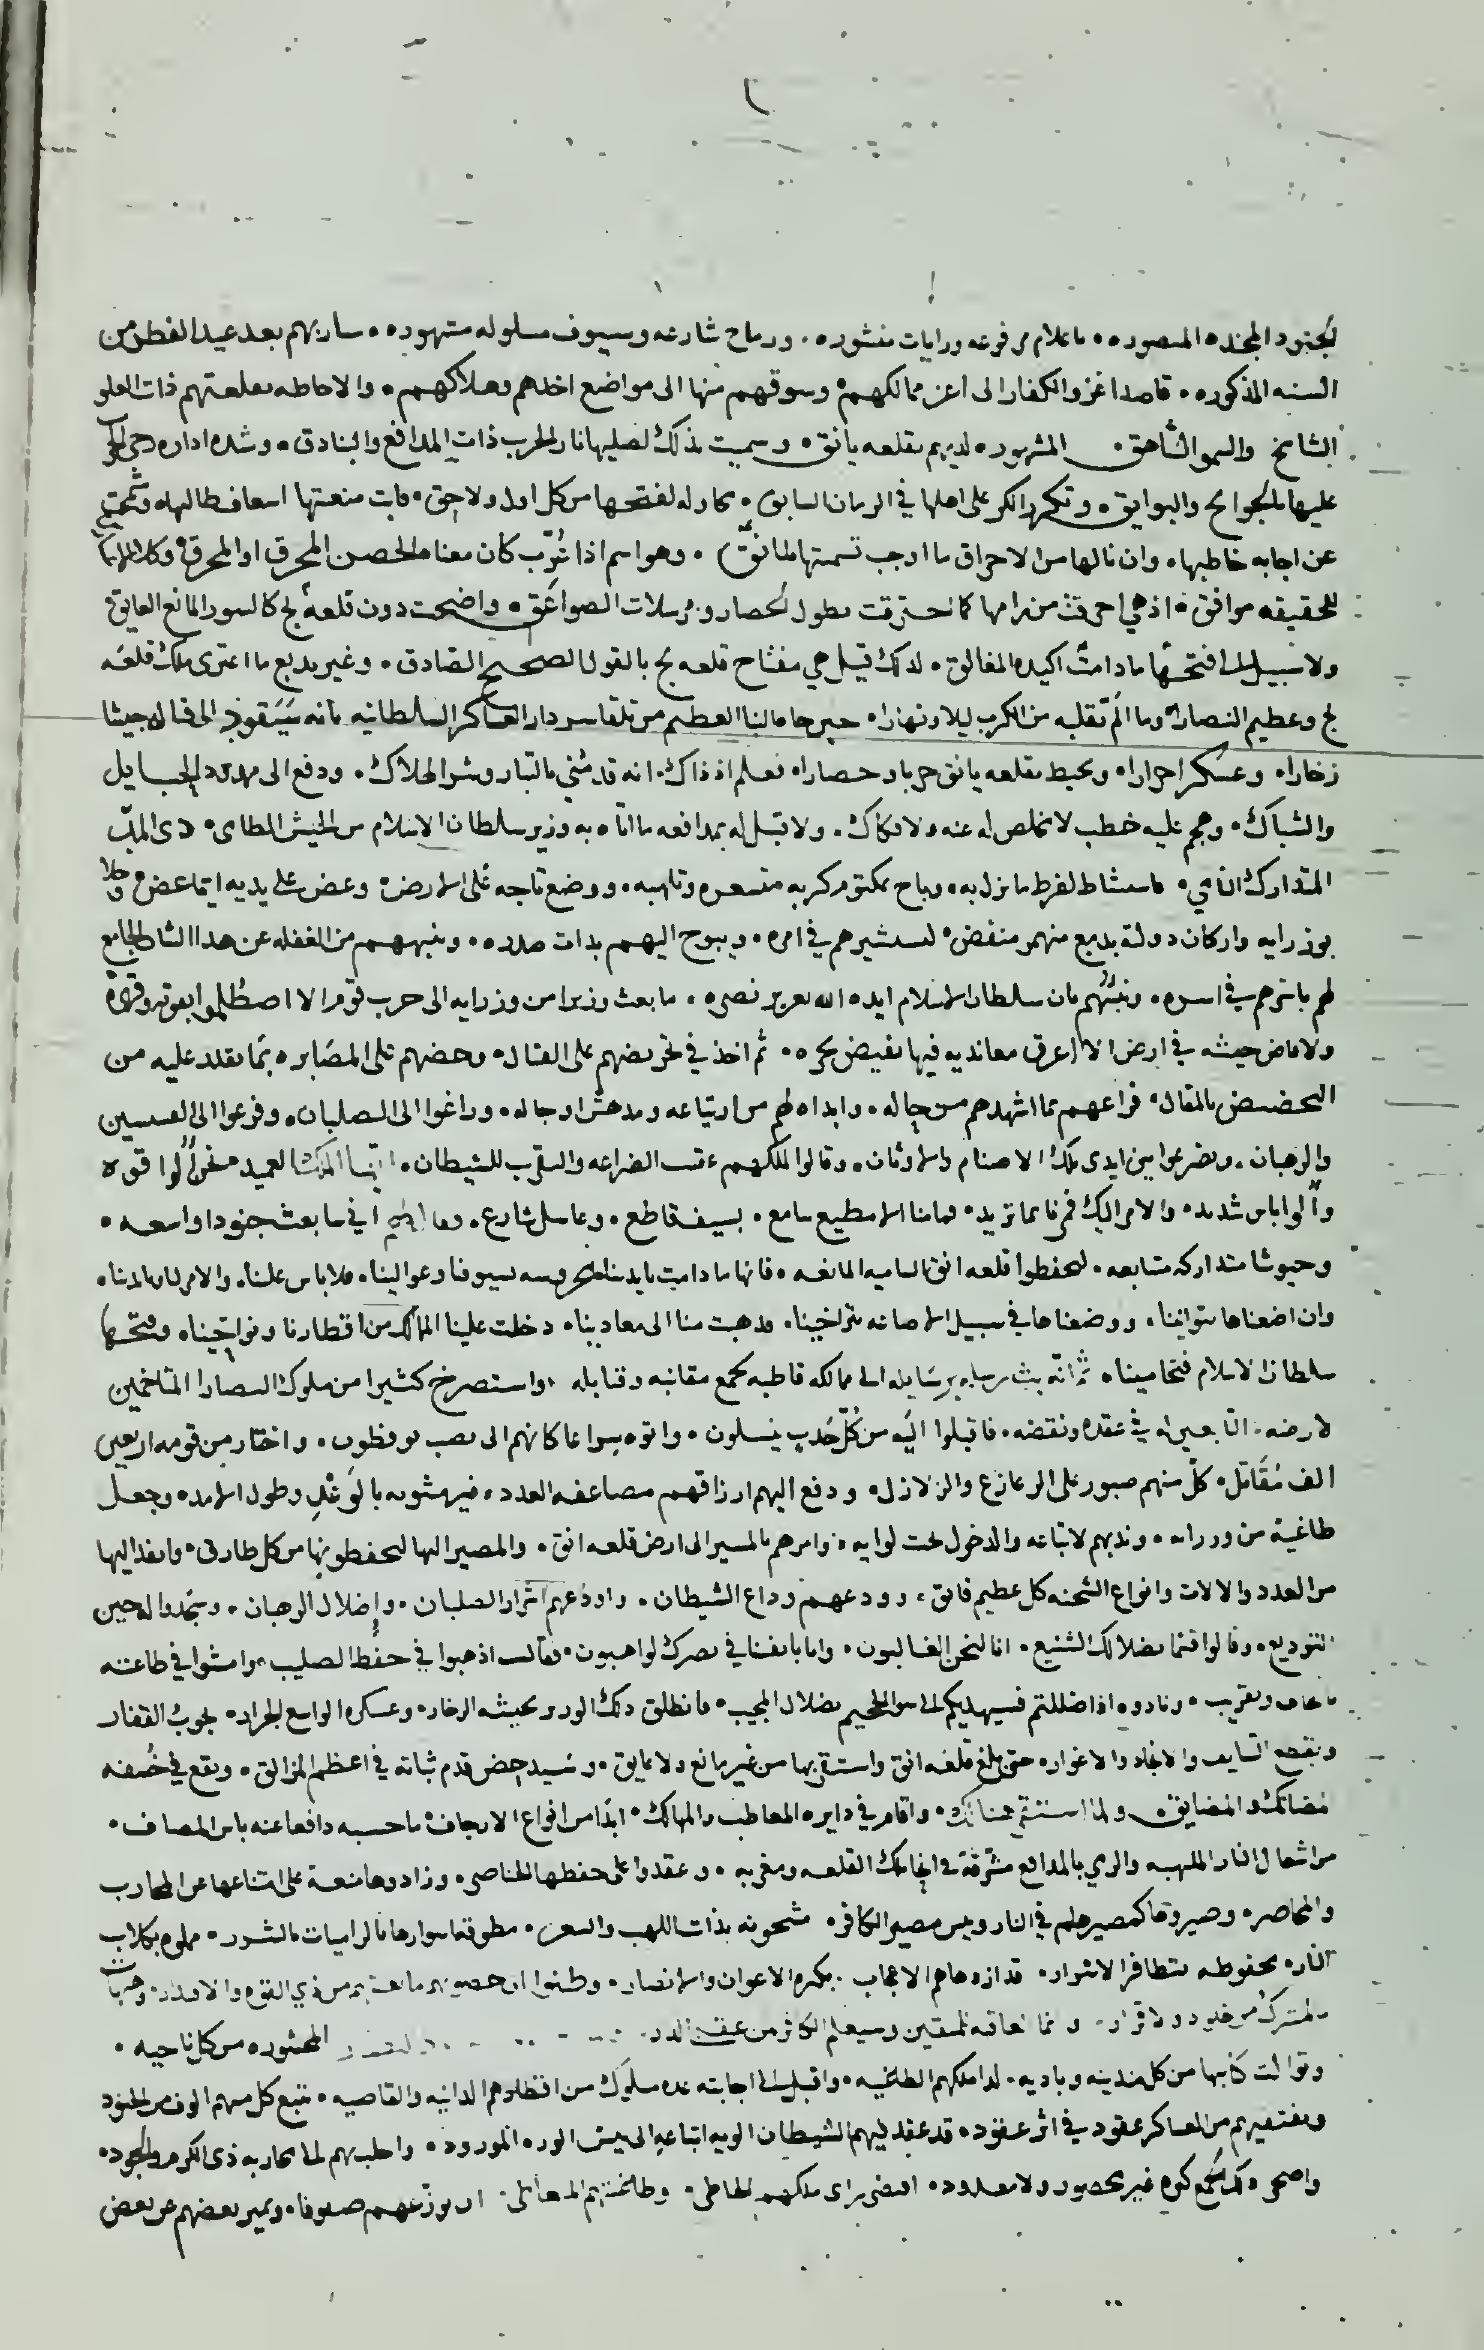 الجنود المجنده المنصوره • باعلام مرفوعه ورايات منشوره • ورماح شارعه وسيوف مسلوله مشهوره • سار بهم بعد عيد الفطر من
السنه المذكوره • قاصدا غزو الكفار الى اعز ممالكهم • وسوقهم منها الى مواضع اخذهم وهلاكهم • والاحاطه بقلعتهم ذات العلو
الشامخ والسمو الشاهق • المشهوره لديهم بقلعه يانق • وسميت بذلك لصليها نار الحرب ذات المدافع والبنادق • وشده اداره رحى
عليها الجوايح والبوايق • وتكرر الكر على اهلها في الزمان السابق • محاوله لفتحها من كل اول ولاحق • فابت منعتها اسعاف طالبها •
عن اجابه خاطبها • وان نالها من الاحراق ما اوجب تسميتها يانق • وهو اسم اذا عُرّب كان معناه الحصن المحرق او المحرقه
للحقيقه موافق • اذ هي احرقت من رامها كما احترقت بطول الحصار ومرسلات الصواعق • واضحت دون قلعه بج كالسور المانع العايق
ولا سبيل الى افتتحها ما دامت اكيده المغالق • لذلك قيل هي مفتاح قلعه بج بالقول الصحيح الصادق • وغير بديع ما اعترى ملك قلعه
بج وعظيم النصارى وما الم بقلبه من الكرب ليلا ونهارا • حين جاه النبا العظيم من تلقا سردار العساكر السلطانيه بانه سيقود الى قتاله جيشا
زخارا • وعسكرا جرارا • ويحيط بقلعه يانق حربا وحصارا • فعلم اذ ذاك • انه قد مُني بالتبار وشر الهلاك • ودفع الى الحبايل
والشباك • وهجم عليه خطب لا مخلص له عنه ولا فكاك • ولا قبل له بمدافعه ما اتاه به وزير سلطان الاسلام من الجيش الطامي • ذي المد
المتدارك النامي • فاستشاط لفرط ما نزل به • وباح بمكتوم كربه • ووضع تاجه على الارض • وعض على يديه ايما عض •
بوزرايه واركان دولته بدمع منهمر منفض • ليستشيرهم في امره • ويبوح اليهم بذات صدره • وينبههم من الغفله عن هذا الشان الجامع
لهم باسرهم في اسره • بان سلطان الاسلام ايده الله بعزيز نصره • ما بعث وزيرا من وزرايه الى حرب قوم الا اصطلموا بقوته
ولا فاض جيشه في ارض الا اغرق معانديه فيها بفيض بحره • ثم اخذ في تحريضهم على القتال • وحضهم على المصابره بما يقدر عليه من
التحضيض بالمقال • فراعهم ما اشهدهم من حاله • وابداه لهم من ارتياعه ومدهش اوجاله • وراغوا الى الصلبان • وفزعوا الى القسيسين
والرهبان • وتضرعوا بين ايدي تلك الاصنام والاوثان • وقالوا لملكهم عقب الضراعه والتقرب للشيطان • ايها الملك العميد نحن اولوا قوه
واولوا باس شديد • والامر اليك فمرنا بما تريد • فما منا الا مطيع سامع • بسيف قاطع • وعاسل شارع • فقال لهم اني سابعث جنودا واسعه •
وجيوشا متداركه متتابعه • ليحفظوا قلعه يانق الساميه المانعه • فانها ما دامت بايدينا محروسه بسيوفنا وعوالينا • فلا باس علينا •
وان اضعناها بتوانينا • ووضعناها في سبيل الاضاعه بتراخينا • وذهبت منا الى معادينا • دخلت علينا الممالك من اقطارنا ونواحينا • وفتحها
سلطان الاسلام فتحا مبينا • ثم انه بث رسله برسايله الى ممالكه قاطبه بجمع مقانبه وقنابله • واستصرخ كثيرا من ملوك النصارا المتاخمين
لارضه • التابعين له في عقده ونقضه • فاقبلوا اليه من كل حدب ينسلون • واتوه سراعا كانهم الى نصب يوفضون • واختار من قومه اربعين
الف مقاتل • كل منهم صبور على الزعازع والزلازل • ودفع اليهم ارزاقهم مضاعفه العدد • وطول الامد • وجعل
طاغية من وزرايه • وندبهم لاتباعه والدخول تحت لوايه • وامرهم بالمسير الى ارض قلعه يانق • والمصير اليها ليحفظونها من كل طارق • وانفذ اليها
من العدد والالات وانواع الشحنه كل عظيم فايق • وودعهم وداع الشيطان • واودعهم اسرار الصلبان • واضلال الرهبان • وسجدوا له حين
التوديع • وقالوا قسما بضلالك الشنيع • انا لنحن الغالبون • وانا بانفسنا في نصرك لواهبون • فقال اذهبوا في حفظ الصليب • وامشوا في طاعته
ونادوه اذا ضللتم فسيهديكم الى سوا الجحيم بضلال المجيب • فانطلق ذلك الوزير بجيشه الزخار • وعسكره الواسع الجرار • يجوب القفار
ويقطع السباسب والانجاد والاغوار • حتى بلغ قلعه يانق واستقر بها من غير مانع ولا عايق • قدم ثباته في اعظم المزالق • ووقع في
المضايق • ولما استتم هنالك • واقام في دايره المعاطب والمهالك • ابدا من انواع الارجاف • ما حسبه دافعا عنه باس المصاف •
من اشعال النار الملهبه والرمي بالمدافع مشرقة في انحا تلك القلعه ومغربه • وعقدوا على حفظها الخناصر • وزادوها منعة على امتناعها عن المحارب
والمحاصر • وصيروها كمصيرهم في النار وبيس مصير الكافر • مشحونه بذات اللهب والسعير • مطوقه اسوارها بالراميات بالشرر • مملوه بكلاب
النار • محفوظه بتظافر الاشرار • قد ازدهاهم الاعجاب • بكثره الاعوان والانصار • وظنوا ان حصونهم مانعتهم من ذي القوه والاقتدار •
وانما العاقبه للمتقين وسيعلم الكافر من عقبى الدار • المحشوره من كل ناحيه •
وتوالت كتايبها من كل مدينه وباديه • لدا ملكهم الطاغيه • واقبل الى اجابته عده ملوك من اقطارهم الدانيه والقاصيه • يتبع كل منهم الوف من الجنود
ويقتفيهم من العساكر عقود في اثر عقود • قد عقد ليهم الشيطان الويه اتباعه الى بيس الورد المورود • واجلب بهم الى محاربه ذي الكرم والجود •
واضحى ذلك الجمع كونه غير محصور ولا معدود • اقتضى راي ملكهم الخاطي • ان يوزعهم صفوفا • ويميز بعضهم عن بعض